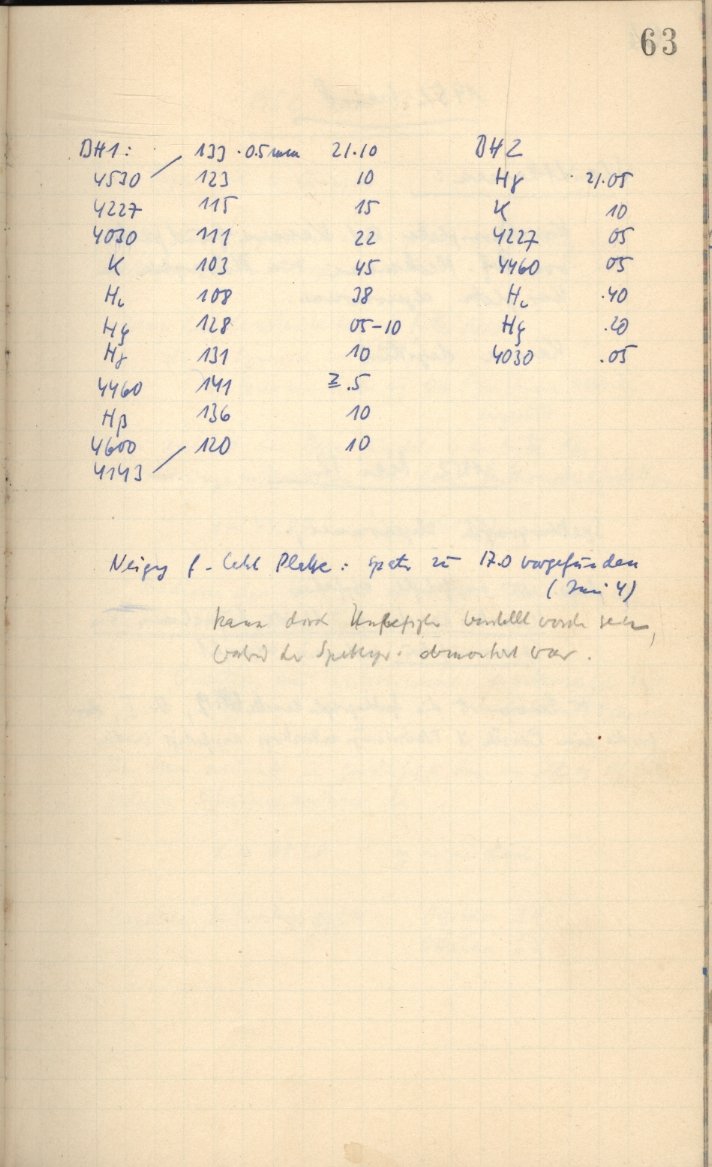 63
BH1: 133 · 0.5 mm 21.10 BH2
4530 123 10 Hγ 21.05
4227 115 15 K 10
4030 111 22 4227 05
K 103 45 4460 05
H 108 38 H .40
128 05-10 .20
Hγ 131 10 4030 .05
4460 141 .5
Hβ 136 10
4600 120 10
4143
Platte: später zu 17.0 vorgefunden
(Juni 4)
kann durch verstellt worden sein,
der demontiert war.